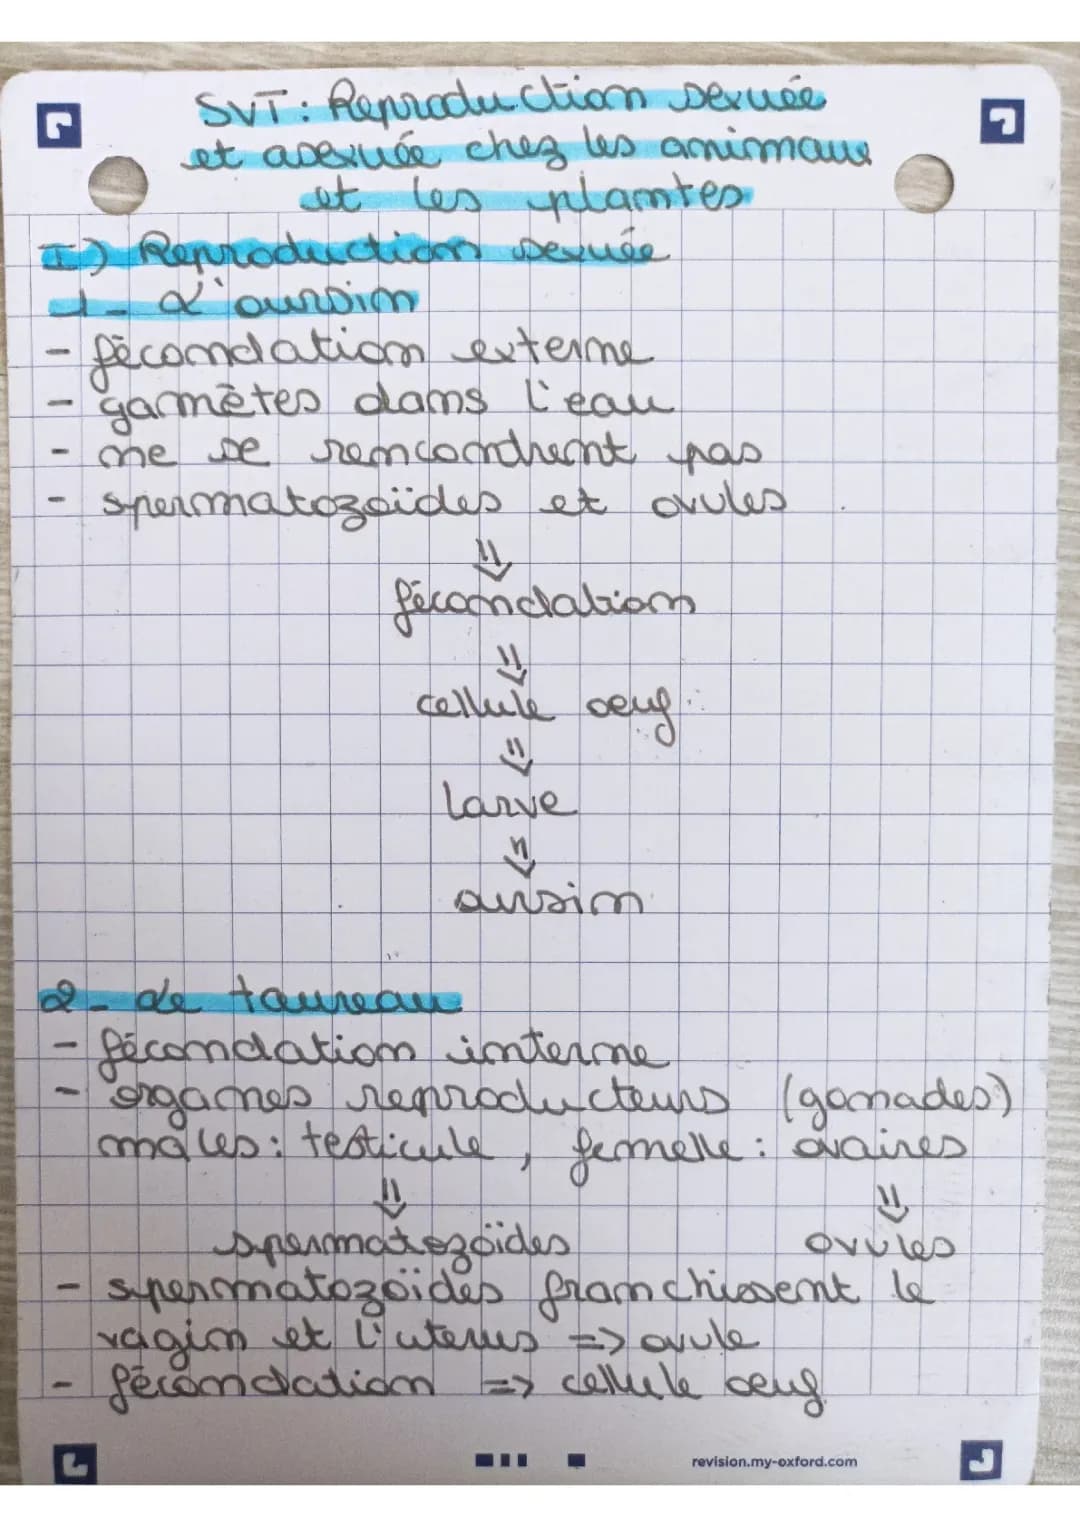 SVT : Reproduction sexuée
et asexuée chez les animaux
et les plantes
I) Reproduction sexuée
1 - L'oursin
- fécondation externe
- gamètes dans l'eau
- ne se rencondrent pas
- spermatozoïdes et ovules
⇓
fécondation
⇓
cellule oeuf
⇓
larve
⇓
oursin
2 - de taureau
- fécondation interne
- organes reproducteurs (gonades)
mâles : testicule, femelle : ovaires
⇓ ⇓
spermatozoïdes ovules
- spermatozoïdes franchissent le
vagin et l'uterus => ovule
- fécondation => cellule oeuf
revision.my-oxford.com